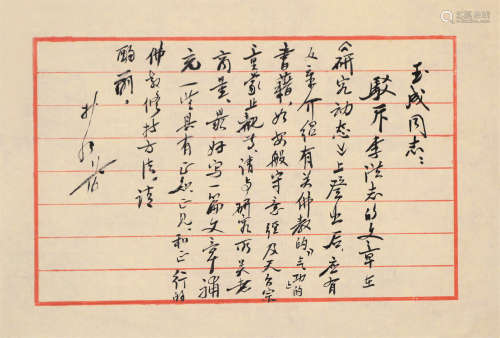 玉成同志：
驳斥李洪志的文章在
《研究动态》上登出后，应有
文章介绍有关佛教的“气功”的
书籍，如安般守意经及天台宗
童蒙止观等。请与研究所吴老
商量，最好写一篇文章补
充一些具有正知正见和正行的
佛教修持方法。请
酌
朴初